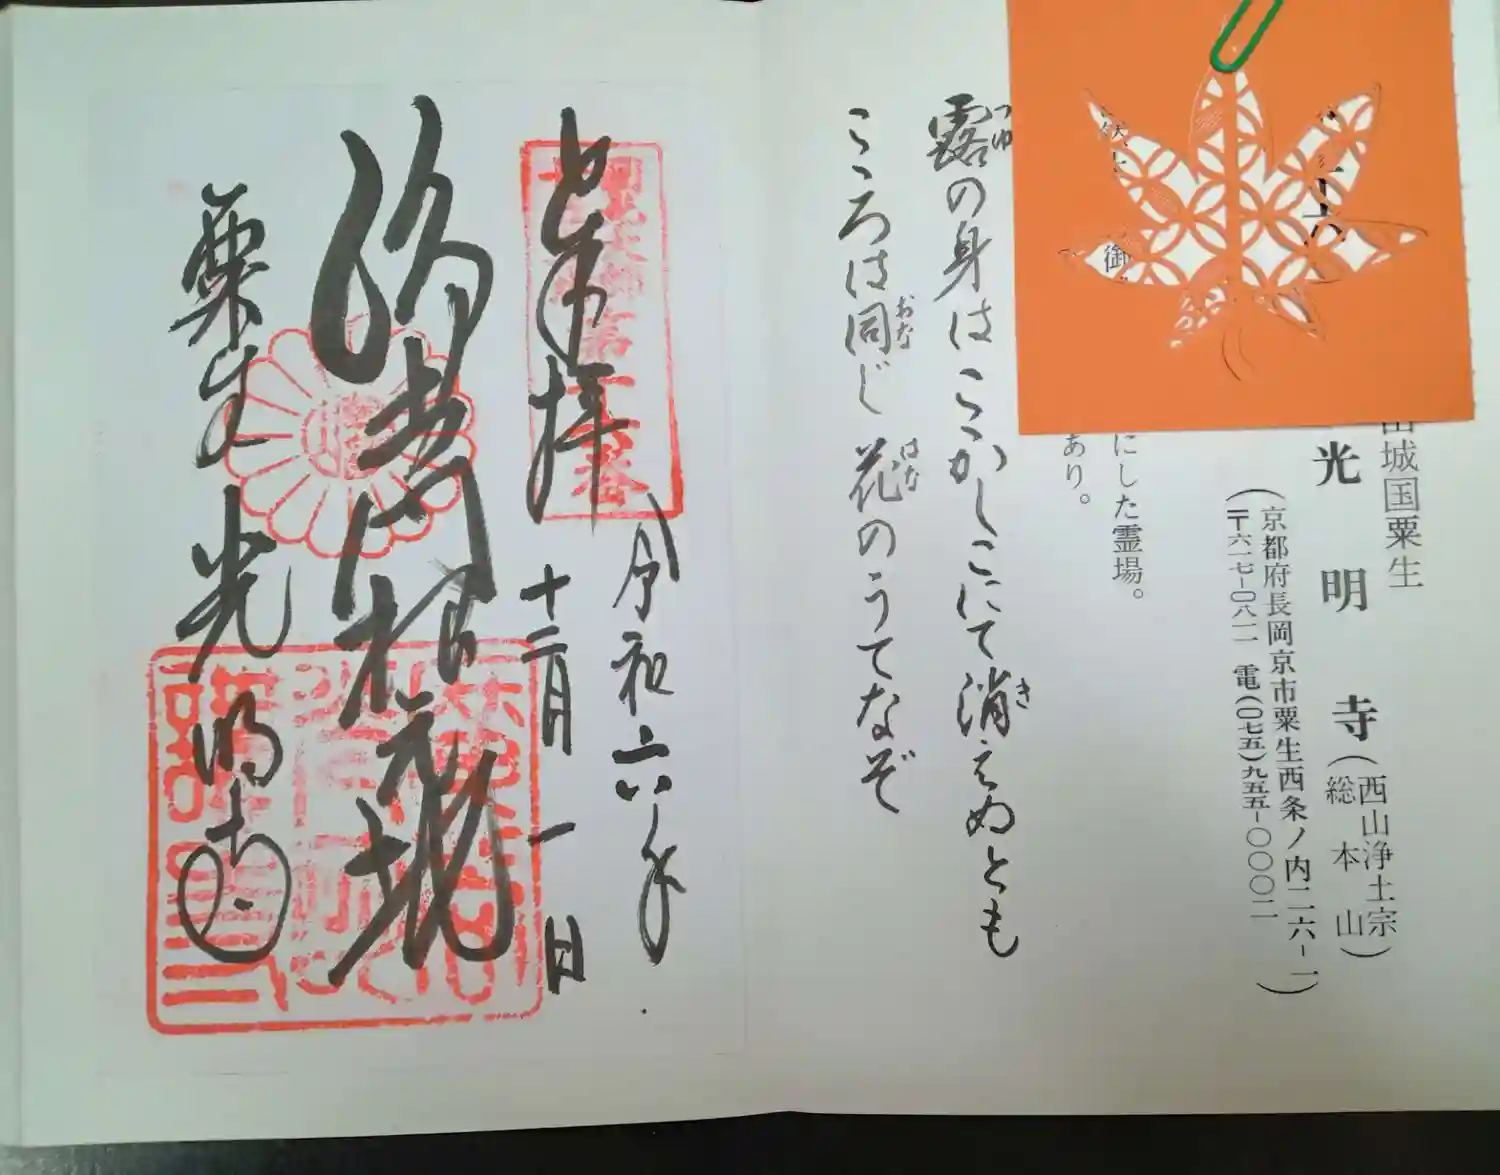 十六
山城国粟生
光明寺(西山浄土宗 総本山)
(京都府長岡京市粟生西条ノ内二六-一)
〒六一七-〇八一一 電(〇七五)九五五-〇〇〇二
御
にした霊場。
あり。
露の身はこゝかしこにて消えぬとも
つゆ
き
こゝろは同じ花のうてなぞ
おな
はな
奉拝
令和六年
十二月一日
浄土門根元地
粟生光明寺